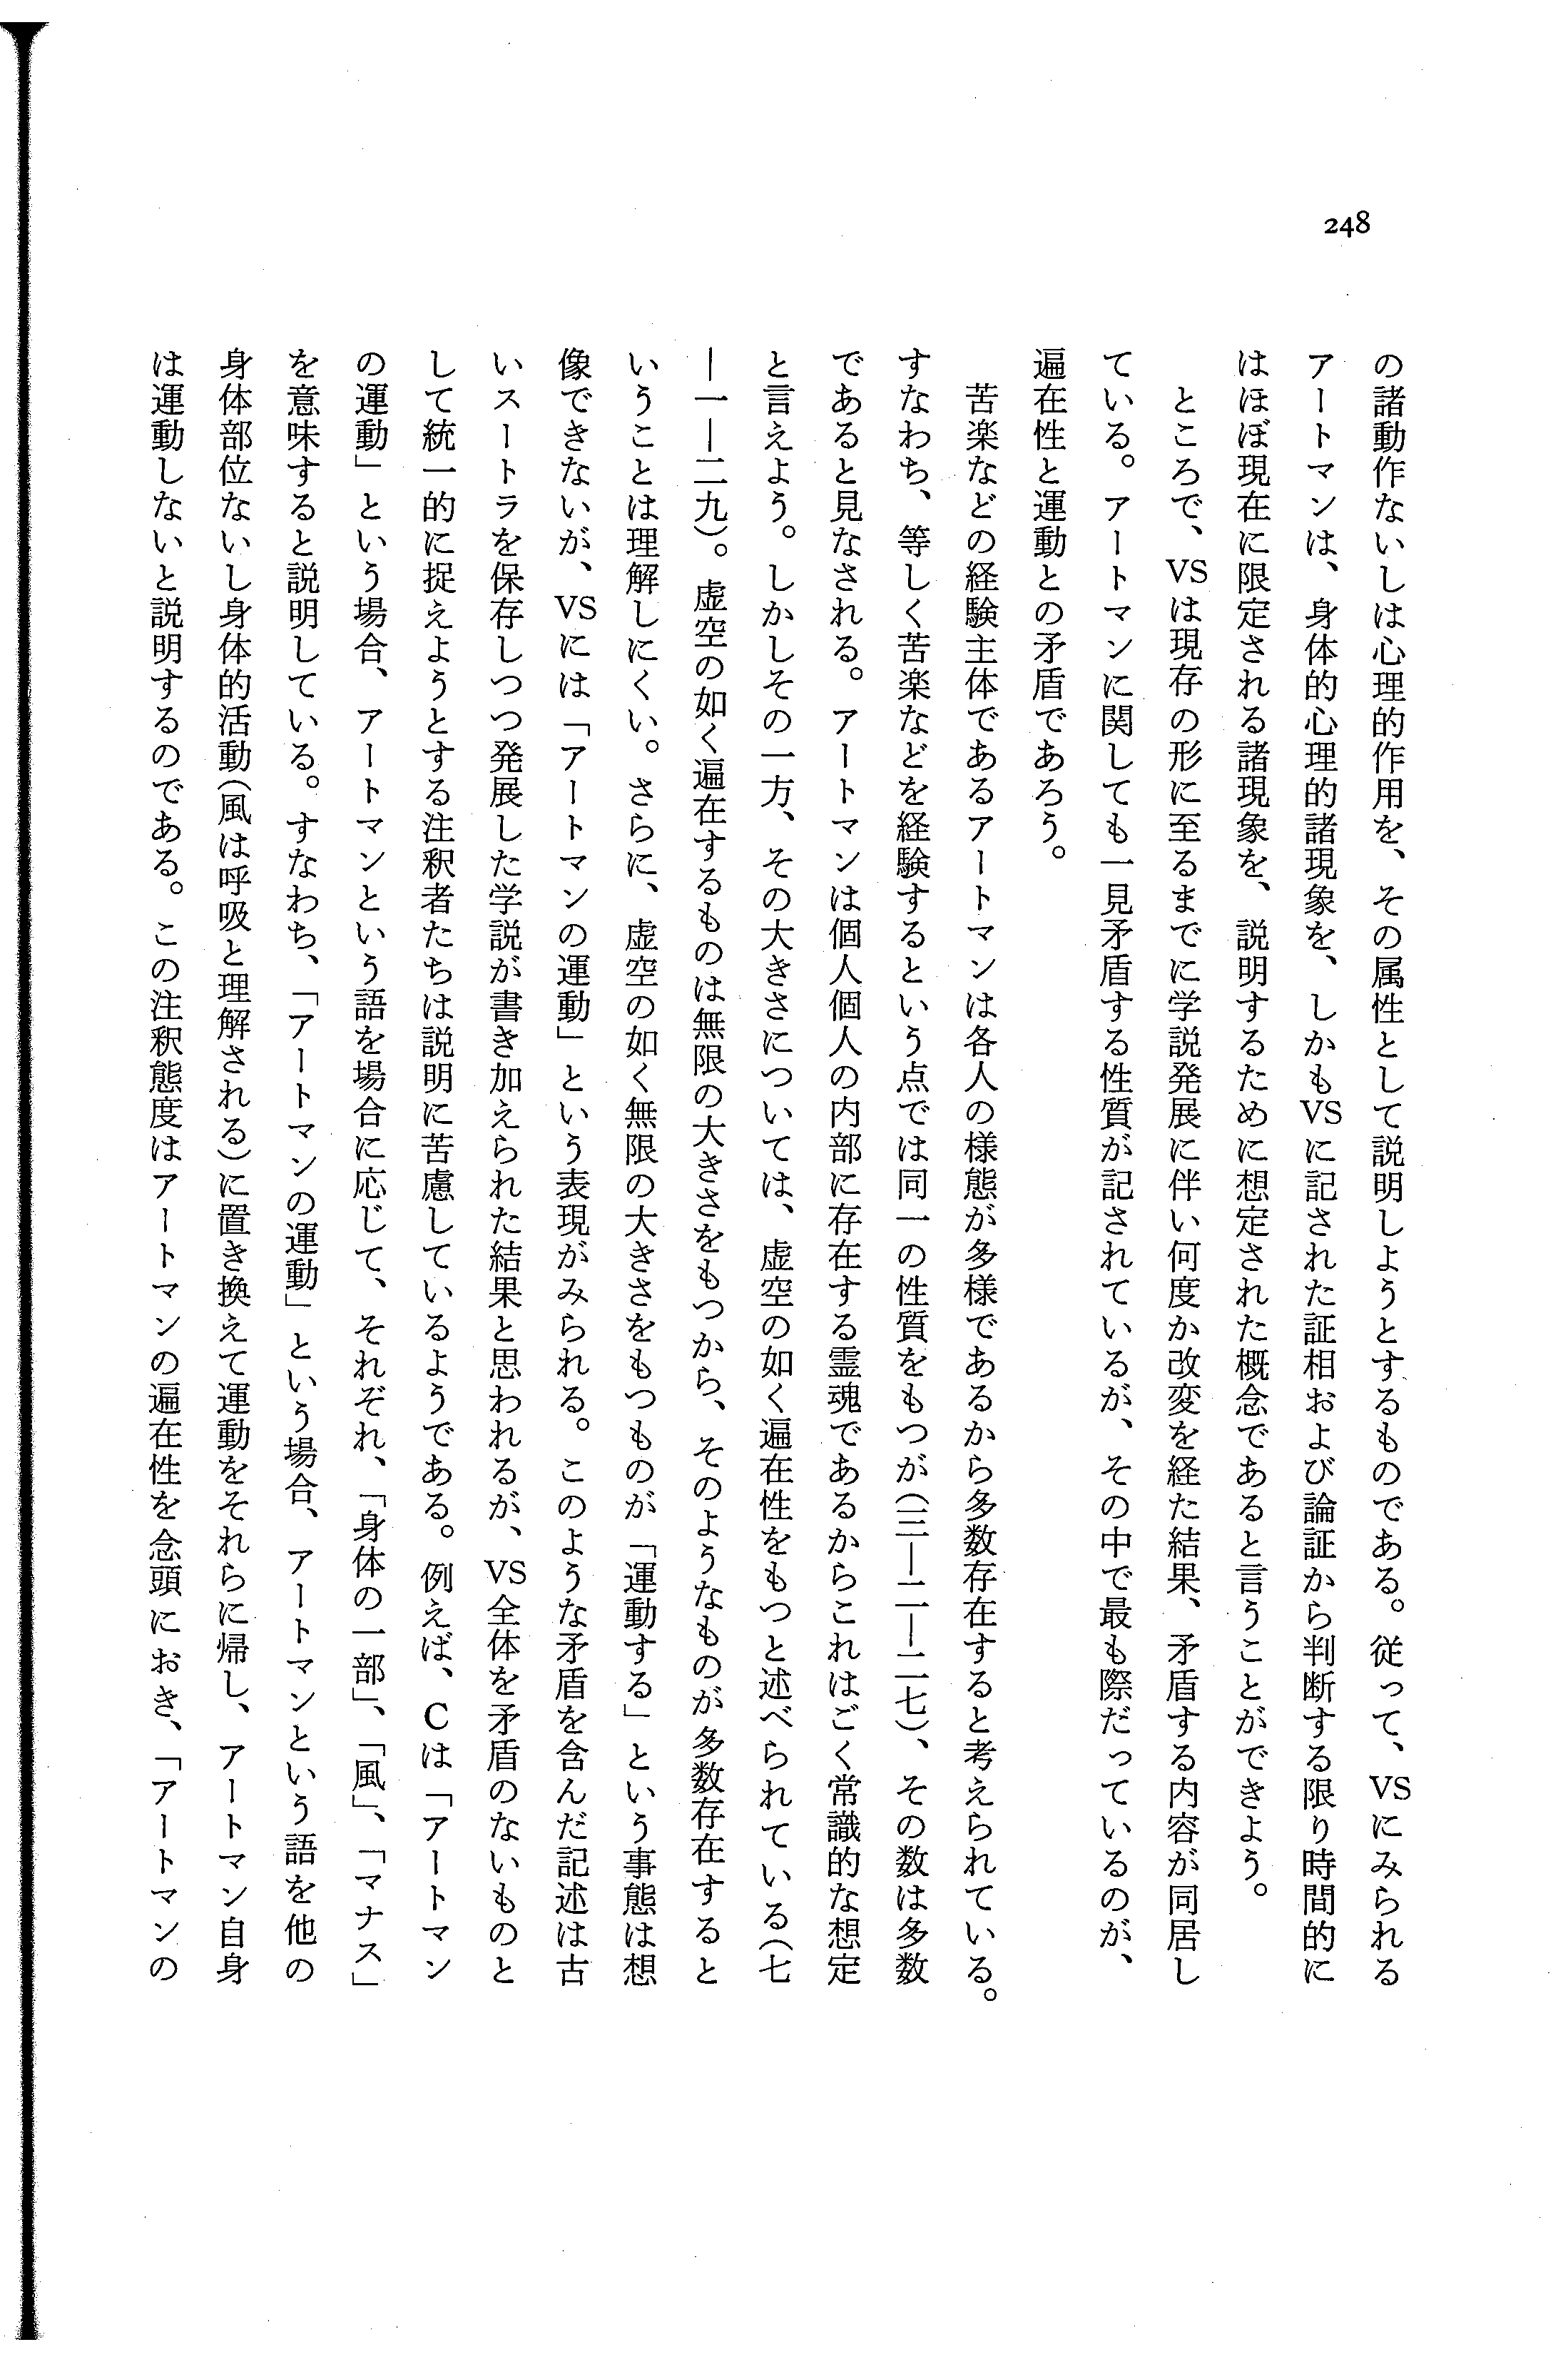 248
の諸動作ないしは心理的作用を、その属性として説明しようとするものである。従って、VSにみられる
アートマンは、身体的心理的諸現象を、しかもVSに記された証相および論証から判断する限り時間的に
はほぼ現在に限定される諸現象を、説明するために想定された概念であると言うことができよう。
ところで、VSは現存の形に至るまでに学説発展に伴い何度か改変を経た結果、矛盾する内容が同居し
ている。アートマンに関しても一見矛盾する性質が記されているが、その中で最も際だっているのが、
遍在性と運動との矛盾であろう。
苦楽などの経験主体であるアートマンは各人の様態が多様であるから多数存在すると考えられている。
すなわち、等しく苦楽などを経験するという点では同一の性質をもつが(三―二―二七)、その数は多数
であると見なされる。アートマンは個人個人の内部に存在する霊魂であるからこれはごく常識的な想定
と言えよう。しかしその一方、その大きさについては、虚空の如く遍在性をもつと述べられている(七
―一―二九)。虚空の如く遍在するものは無限の大きさをもつから、そのようなものが多数存在すると
いうことは理解しにくい。さらに、虚空の如く無限の大きさをもつものが「運動する」という事態は想
像できないが、VSには「アートマンの運動」という表現がみられる。このような矛盾を含んだ記述は古
いスートラを保存しつつ発展した学説が書き加えられた結果と思われるが、VS全体を矛盾のないものと
して統一的に捉えようとする注釈者たちは説明に苦慮しているようである。例えば、Cは「アートマン
の運動」という場合、アートマンという語を場合に応じて、それぞれ、「身体の一部」、「風」、「マナス」
を意味すると説明している。すなわち、「アートマンの運動」という場合、アートマンという語を他の
身体部位ないし身体的活動(風は呼吸と理解される)に置き換えて運動をそれらに帰し、アートマン自身
は運動しないと説明するのである。この注釈態度はアートマンの遍在性を念頭におき、「アートマンの